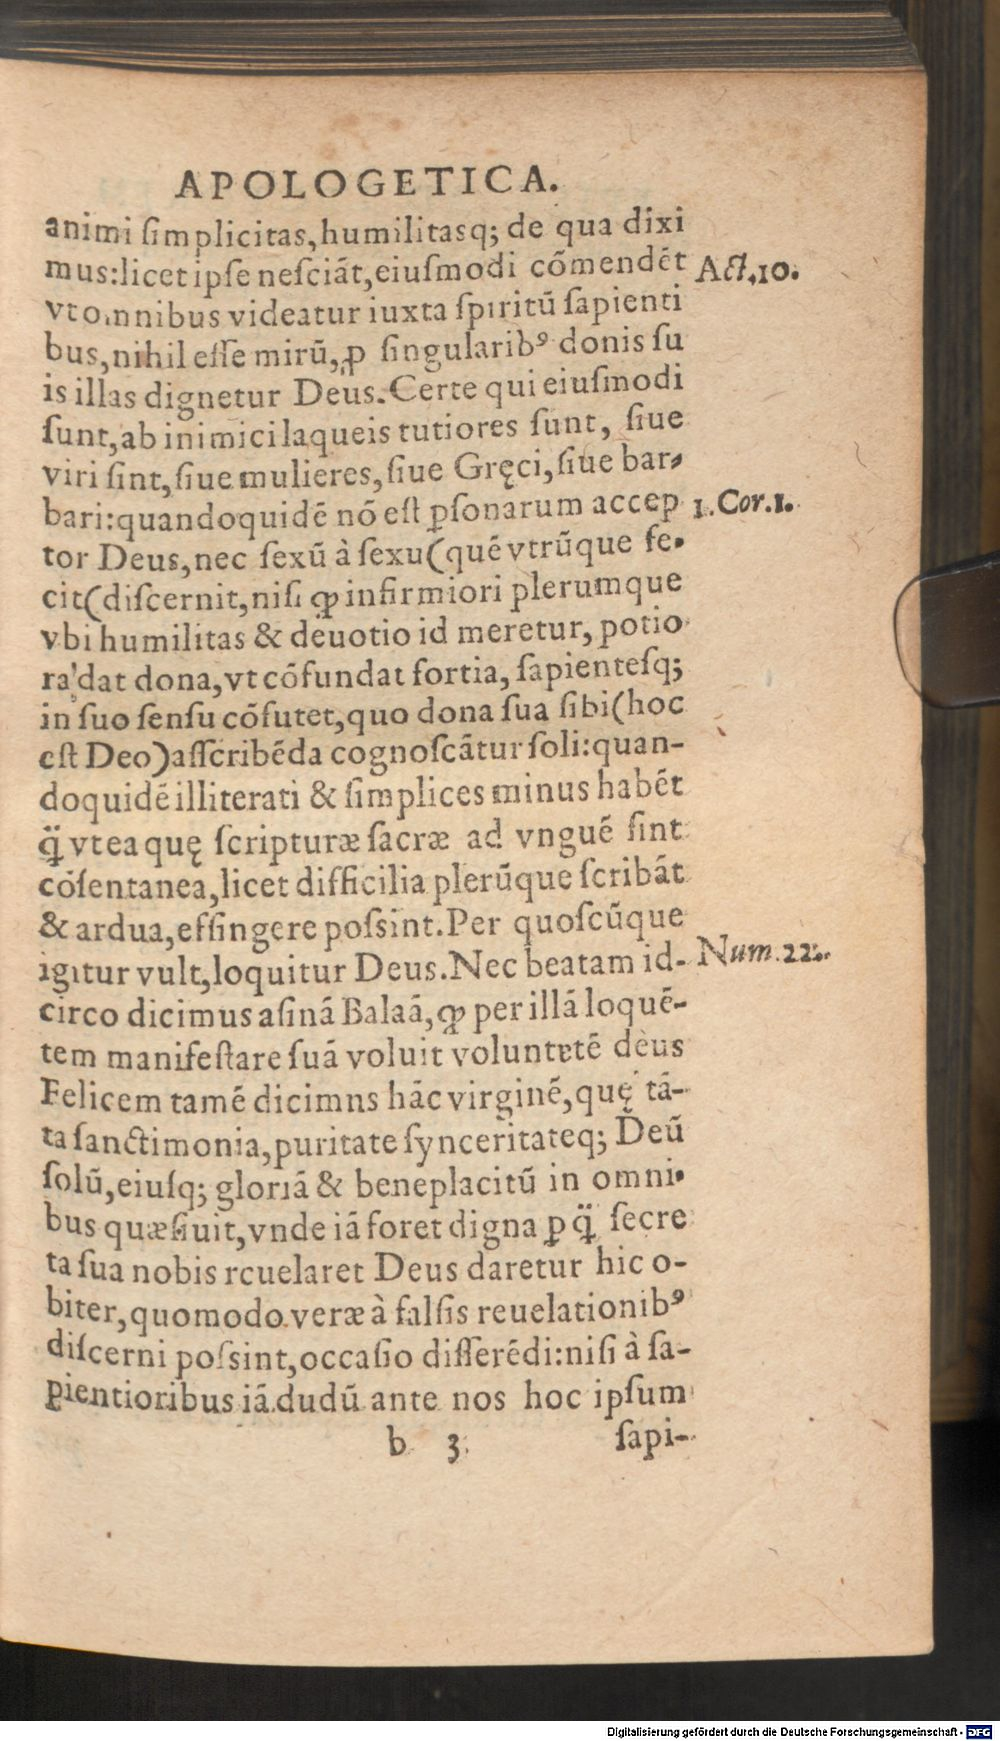 APOLOGETICA.
animi ſimplicitas, humilitasq; de qua dixi
mus: licet ipſe neſciãt, eiuſmodi cõmendẽt Act. 10.
vt omnibus videatur iuxta ſpiritũ ſapienti
bus, nihil eſſe mirũ, ꝓ ſingularibꝰ donis ſu
is illas dignetur Deus. Certe qui eiuſmodi
ſunt, ab inimici laqueis tutiores ſunt, ſiue
viri ſint, ſiue mulieres, ſiue Gręci, ſiue bar-
bari: quandoquidẽ nõ eſt ꝑſonarum accep 1. Cor. 1.
tor Deus, nec ſexũ à ſexu (quẽ vtrũque fe-
cit( diſcernit, niſi ꝙ infirmiori plerumque
vbi humilitas & deuotio id meretur, potio
ra dat dona, vt cõfundat fortia, ſapienteſq;
in ſuo ſenſu cõfutet, quo dona ſua ſibi (hoc
eſt Deo) aſſcribẽda cognoſcãtur ſoli: quan-
doquidẽ illiterati & ſimplices minus habẽt
q̈ vt ea quę ſcripturæ ſacræ ad vnguẽ ſint
cõſentanea, licet difficilia plerũque ſcribãt
& ardua, effingere poſsint. Per quoſcũque
igitur vult, loquitur Deus. Nec beatam id- Num. 22.
circo dicimus aſinã Balaã, ꝙ per illã loquẽ-
tem manifeſtare ſuã voluit voluntetẽ deus
Felicem tamẽ dicimns hãc virginẽ, quę tã-
ta ſanctimonia, puritate ſynceritateq; Deũ
ſolũ, eiuſq; gloriã & beneplacitũ in omni-
bus quæſiuit, vnde iã foret digna ꝑ q̈ ſecre
ta ſua nobis rcuelaret Deus daretur hic o-
biter, quomodo veræ à falſis reuelationibꝰ
diſcerni poſsint, occaſio diſſerẽdi: niſi à ſa-
pientioribus iã dudũ ante nos hoc ipſum
b 3 ſapi-
Digitalisierung gefördert durch die Deutsche Forschungsgemeinschaft - DFG